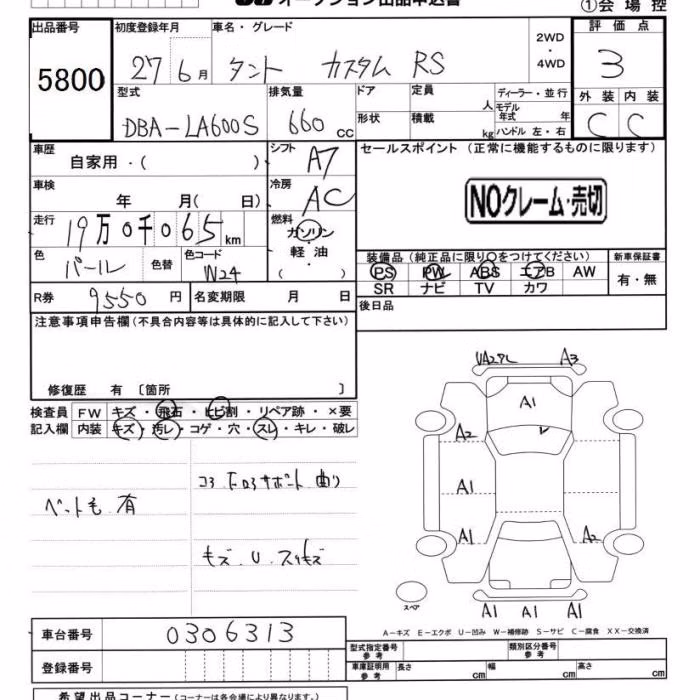 オークション出品申込書
①会場控
出品番号 初度登録年月 車名・グレード 2WD・4WD 評価点
5800 27 6月 タント カスタム RS 3
型式 排気量 ドア 定員 人 ディーラー・並行 外装 内装
DBA-LA600S 660cc 形状 積載 kg モデル年式 年 ハンドル 左・右 C C
車歴 自家用・( ) シフト A7 セールスポイント (正常に機能するものに限ります)
車検 年 月( 日) 冷房 AC NOクレーム・売切
走行 19万0千065km 燃料 ガソリン・軽油・( )
色 パール 色替 色コード W24 装備品 (純正品に限り○をつけてください) 新車保証書
PS PW ABS エアB AW 有・無
SR ナビ TV カワ
R券 9550円 名変期限 月 日 後日品
注意事項申告欄(不具合内容等は具体的に記入して下さい)
修復歴 有 〔箇所 〕
検査員 FW キズ・飛石・ヒビ割・リペア跡・×要
記入欄 内装 キズ・汚レ・コゲ・穴・スレ・キレ・破レ
ペット毛 有
コアロアサポート 曲り
キズ.U.スリキズ
A3
A1
A2
A1
A1 A2
A1 A1 A1
スペア
A-キズ E-エクボ U-凹み W-補修跡 S-サビ C-腐食 XX-交換済
車台番号 0306313 型式指定番号 参考 類別区分番号 参考
登録番号 車庫証明用 参考 長さ cm 幅 cm 高さ cm
希望出品コーナー(コーナーは各会場により異なります。)